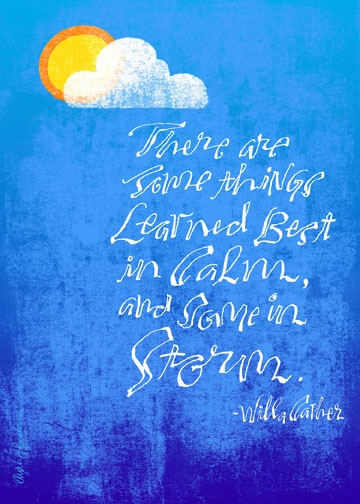 There are
Some things
Learned Best
in Calm,
and Some in
Storm.
-Willa Cather